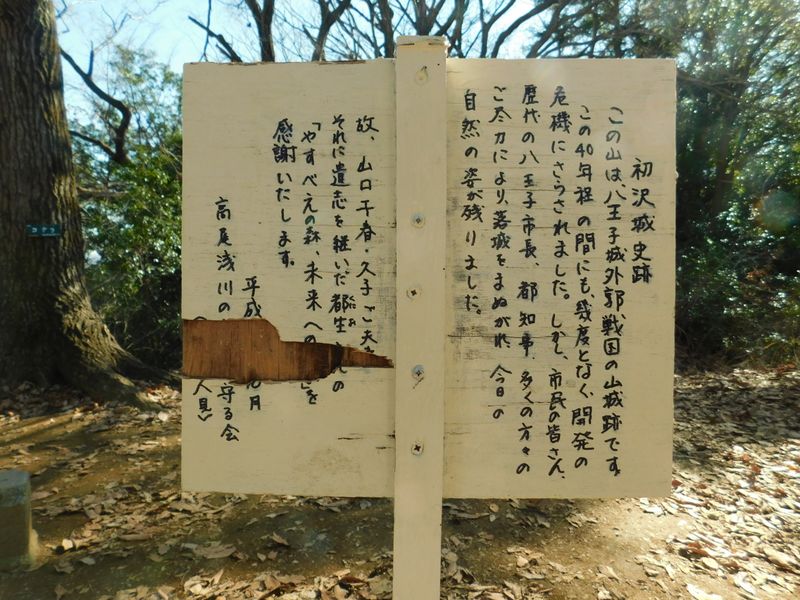 初沢城史跡
この山は、八王子城外郭、戦国の山城跡です。
この40年程の間にも、幾度となく、開発の
危機にさらされました。しかし、市民の皆さん、
歴代の八王子市長、都知事、多くの方々の
ご尽力により、落城をまぬがれ、今日の
自然の姿が残りました。
故、山口千春・久子ご夫
それに遺志を継いだ都生 の
「やすべえの森、未来への 」を
感謝いたします。
平成 月
高尾浅川の 守る会